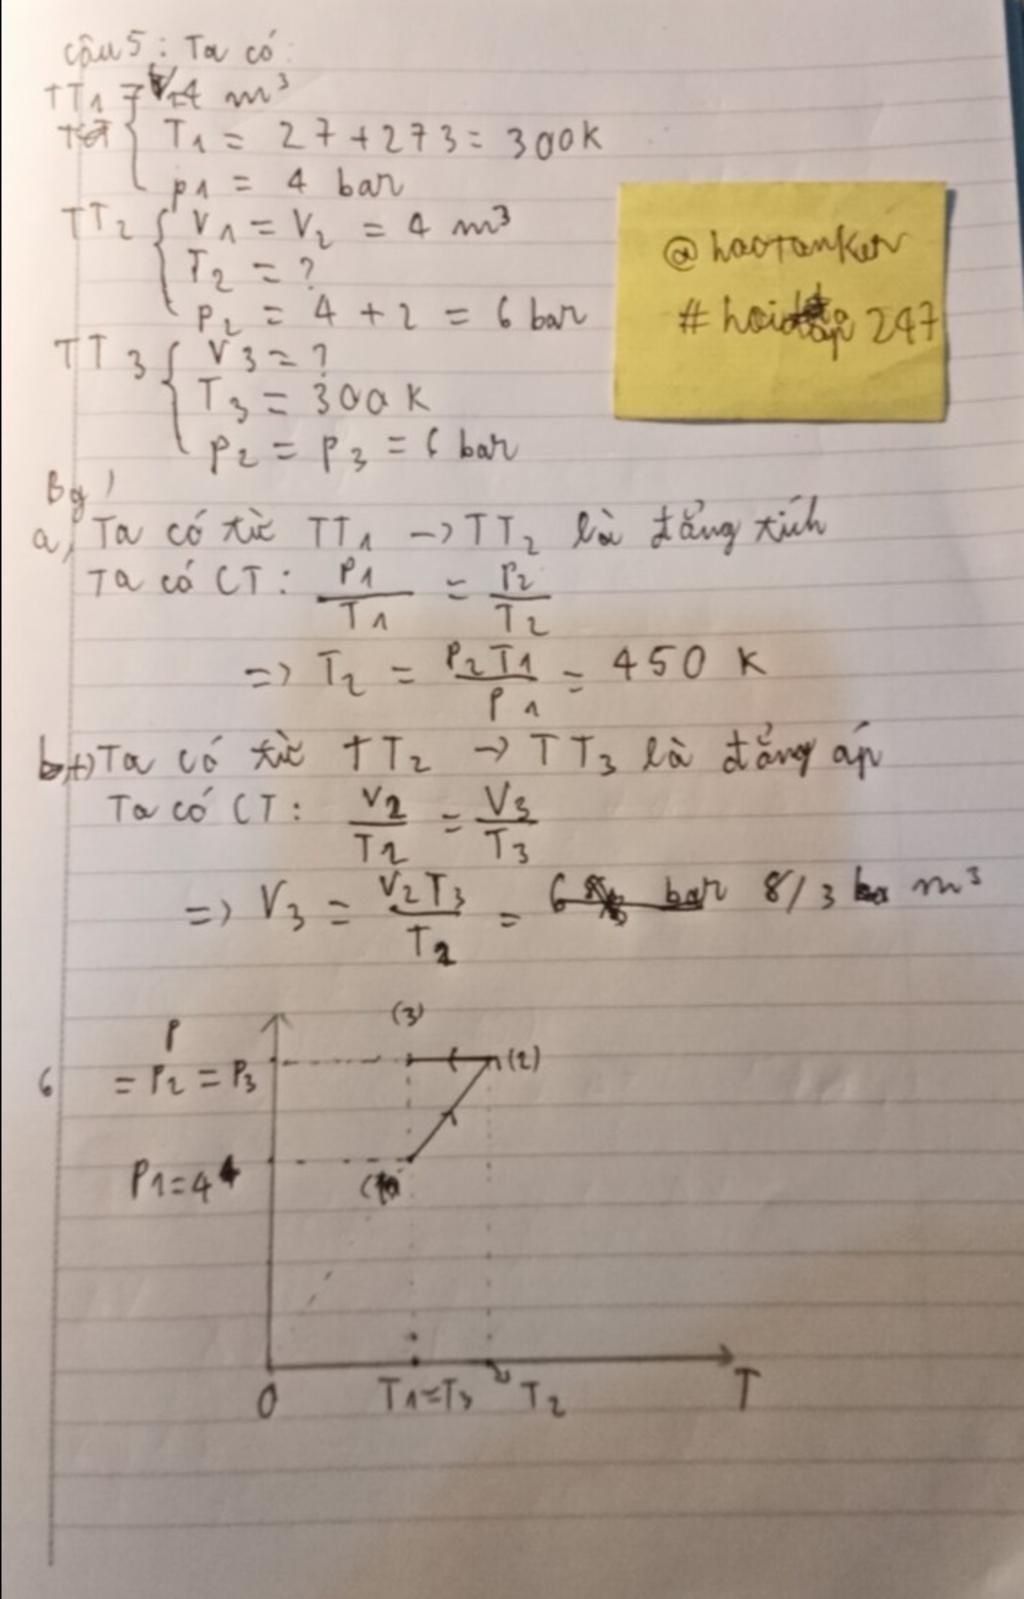 Câu 5: Ta có:
TT1 V1 = 4 m³
T1 = 27 + 273 = 300K
p1 = 4 bar
TT2 { V1 = V2 = 4 m³
T2 = ?
P2 = 4 + 2 = 6 bar
TT3 { V3 = ?
T3 = 300 K
P2 = P3 = 6 bar
@haotanker
#hoidap247
Bg
a, Ta có từ TT1 -> TT2 là đẳng tích
Ta có CT: P1/T1 = P2/T2
=> T2 = P2T1/P1 = 450 K
b, +) Ta có từ TT2 -> TT3 là đẳng áp
Ta có CT: V2/T2 = V3/T3
=> V3 = V2T3/T2 = 8/3 m³
P
(3)
(2)
6 = P2 = P3
P1 = 4
(1)
O T1=T3 T2 T